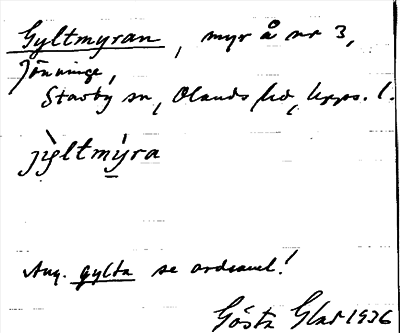 Gyltmyran, myr å nr 3,
Jönninge,
Stavby sn, Olands hd, Upps. l.
jỳltmỳra
Ang. gylta se ordsaml!
Gösta Glad 1936